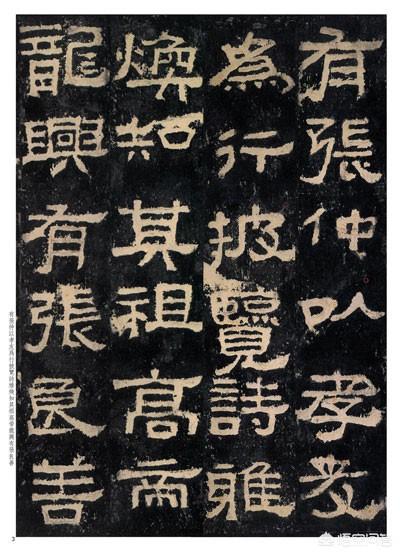 有張仲以孝友
為行披覽詩雅
煥知其祖高帝
龍興有張良善
有張仲以孝友為行披覽詩雅煥知其祖高帝龍興有張良善
3
悟空问答